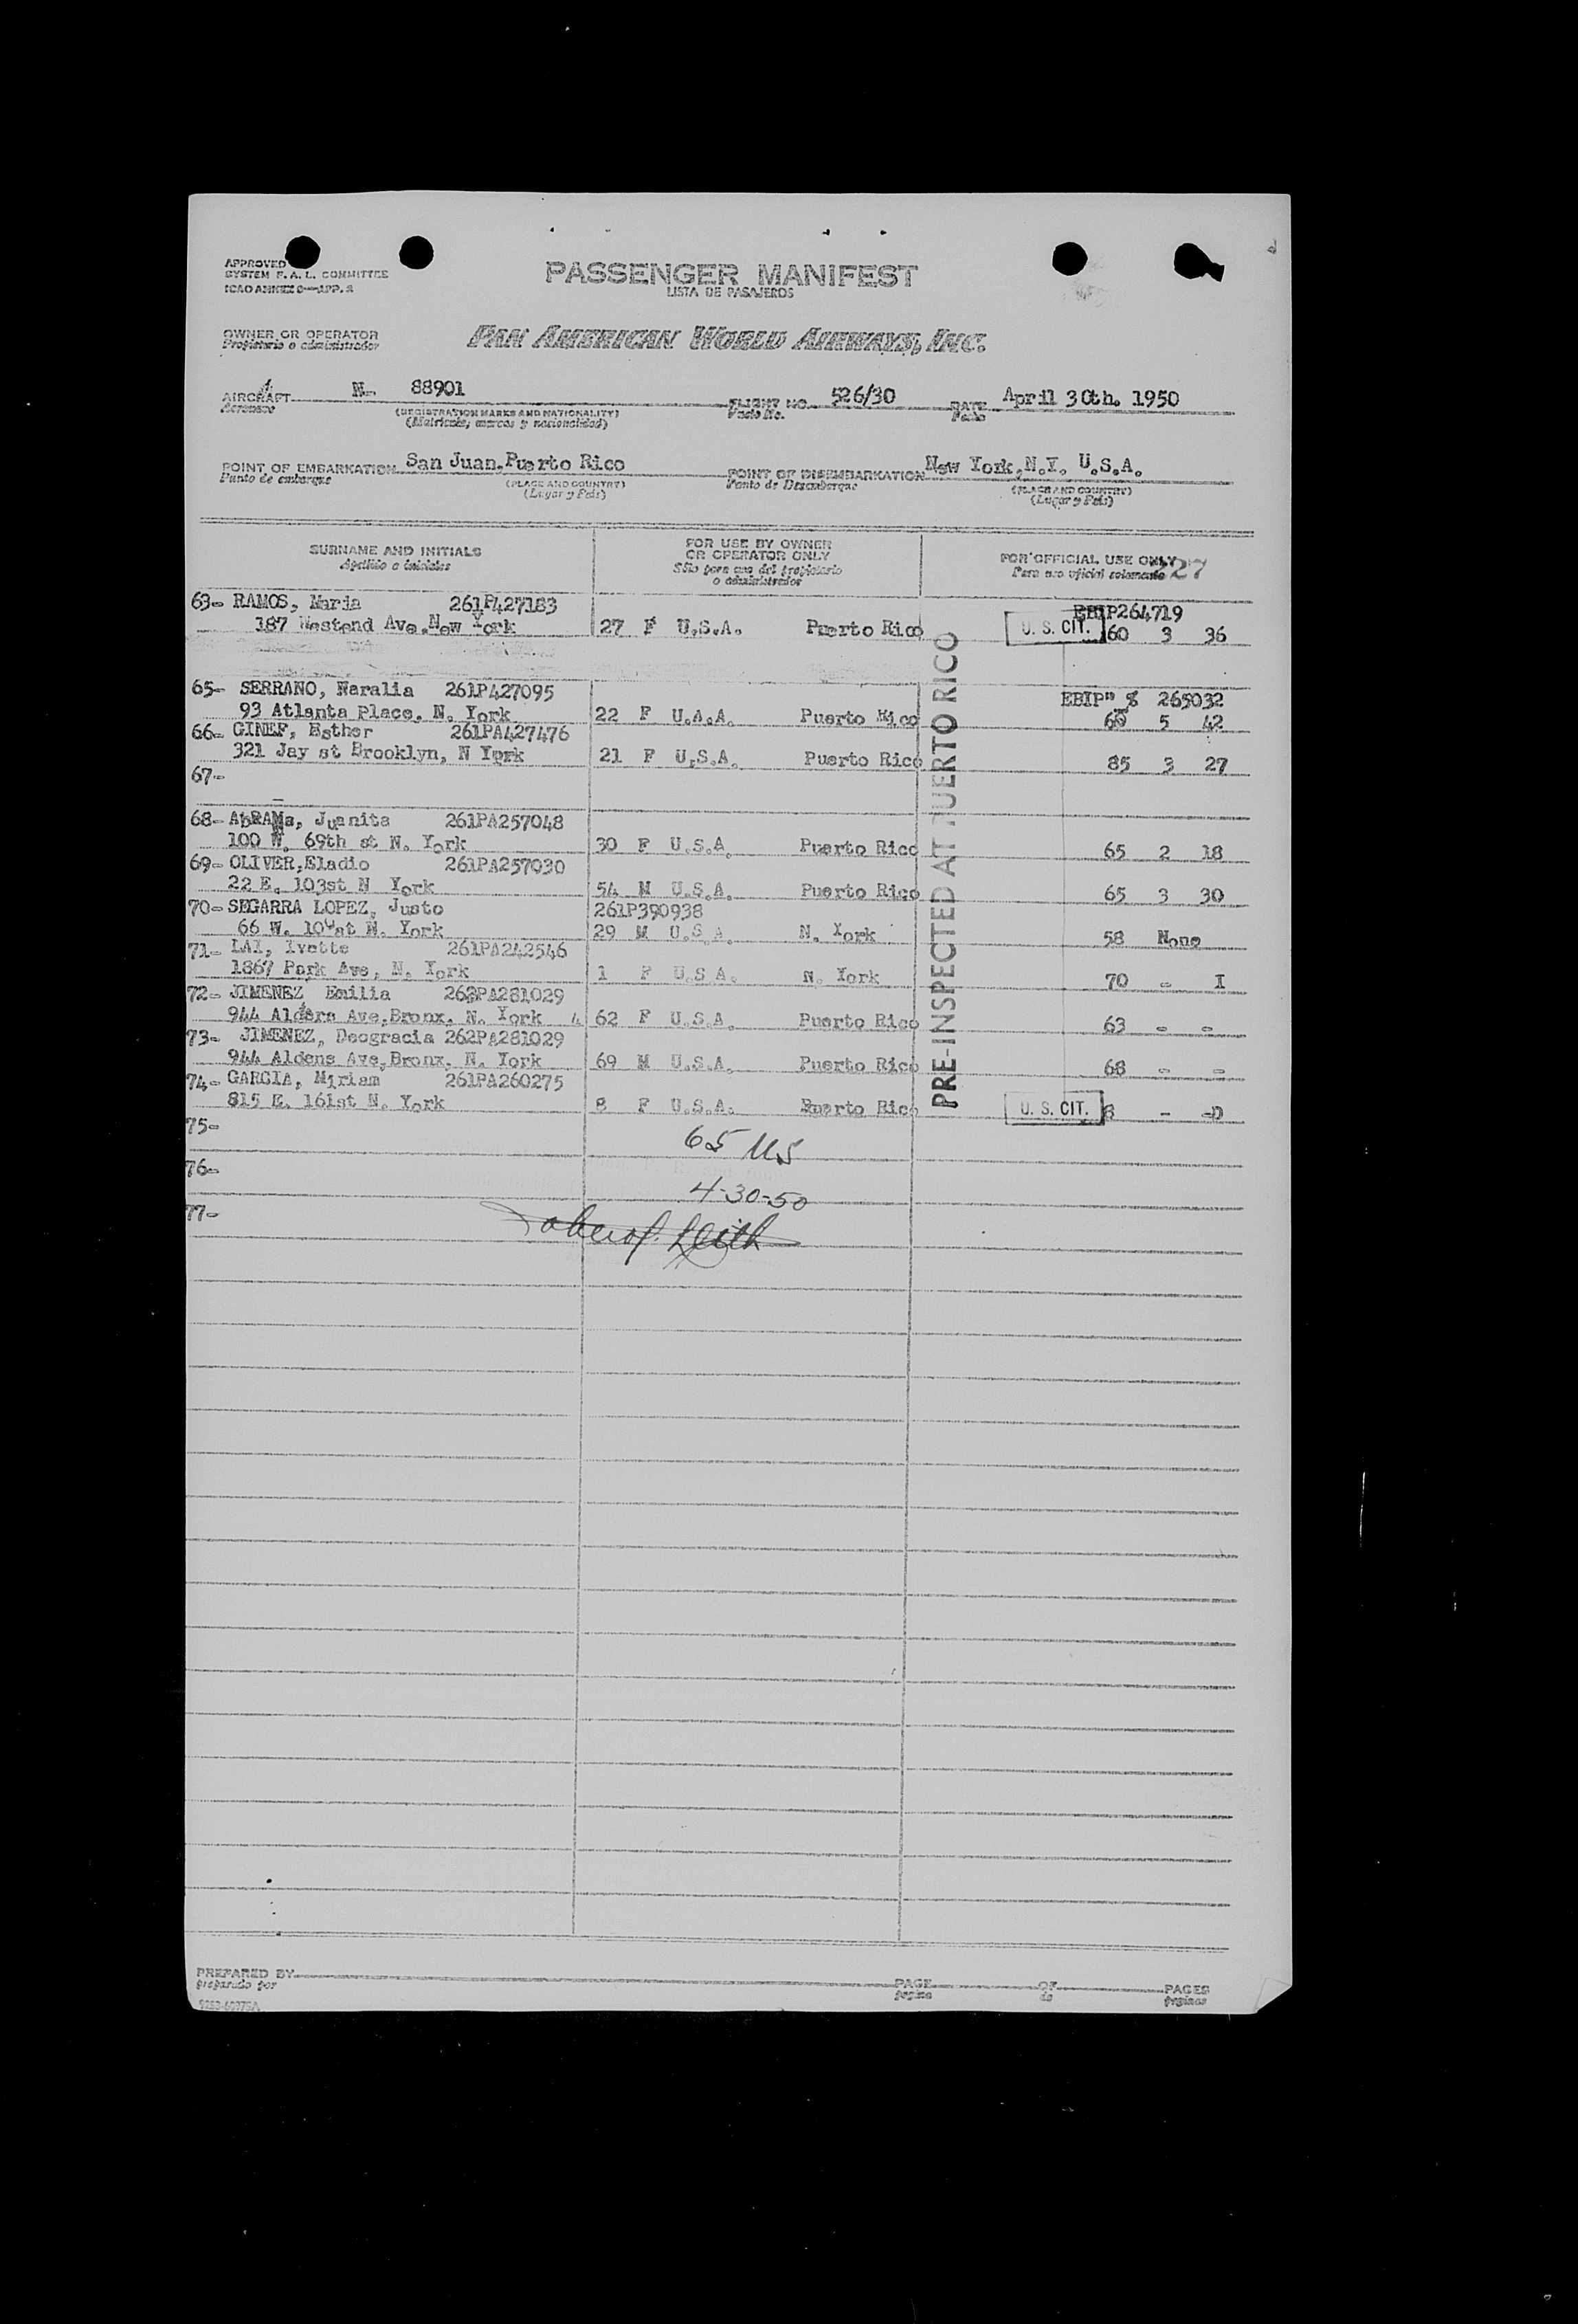 APPROVED
SYSTEM F. A. L. COMMITTEE
ICAO ANNEX 9—APP. 2
PASSENGER MANIFEST
LISTA DE PASAJEROS
OWNER OR OPERATOR
Propietario o administrador
PAN AMERICAN WORLD AIRWAYS, INC.
AIRCRAFT N- 88901 FLIGHT NO. 526/30 DATE April 30th. 1950
Aeronave (REGISTRATION MARKS AND NATIONALITY) Vuelo No. Fecha
(Matriculas, marcas y nacionalidad)
POINT OF EMBARKATION San Juan,Puerto Rico POINT OF DISEMBARKATION New York,N.Y. U.S.A.
Punto de embarque (PLACE AND COUNTRY) Punto de Desembarque (PLACE AND COUNTRY)
(Lugar y País) (Lugar y País)
SURNAME AND INITIALS FOR USE BY OWNER OR OPERATOR ONLY FOR OFFICIAL USE ONLY
Apellido e iniciales Sólo para uso del propietario o administrador Para uso oficial solamente 227
63- RAMOS, Maria 261P427183 EBIP264719
187 Westend Ave.New York 27 F U.S.A. Puerto Rico U. S. CIT. 60 3 36
65- SERRANO, Naralia 261P427095 EBIP" % 265032
93 Atlanta Place. N. York 22 F U.A.A. Puerto Rico 60 5 42
66- GINEF, Esther 261PA427476
321 Jay st Brooklyn, N York 21 F U.S.A. Puerto Rico 85 3 27
67-
68- AbRAMs, Juanita 261PA257048
100 W. 69th st N. York 30 F U.S.A. Puerto Rico 65 2 18
69- OLIVER,Eladio 261PA257030
22 E. 103st N York 54 M U.S.A. Puerto Rico 65 3 30
70- SEGARRA LOPEZ, Justo 261P390938
66 W. 10 st N. York 29 M U.S.A. N. York 58 None
71- LAI, Ivette 261PA242546
1867 Park Ave, N. York 1 F U.S.A. N. York 70 - I
72- JIMENEZ Emilia 262PA281029
944 Aldens Ave,Bronx. N. York 62 F U.S.A. Puerto Rico 63 - -
73- JIMENEZ, Deogracia 262PA281029
944 Aldens Ave,Bronx, N. York 69 M U.S.A. Puerto Rico 68 - -
74- GARCIA, Miriam 261PA260275
815 E. 161st N. York 8 F U.S.A. Puerto Rico U. S. CIT. 8 - -0
PRE-INSPECTED AT PUERTO RICO
75-
65 US
76-
4-30-50
77-
PREPARED BY PAGE OF PAGES
preparado por página de páginas